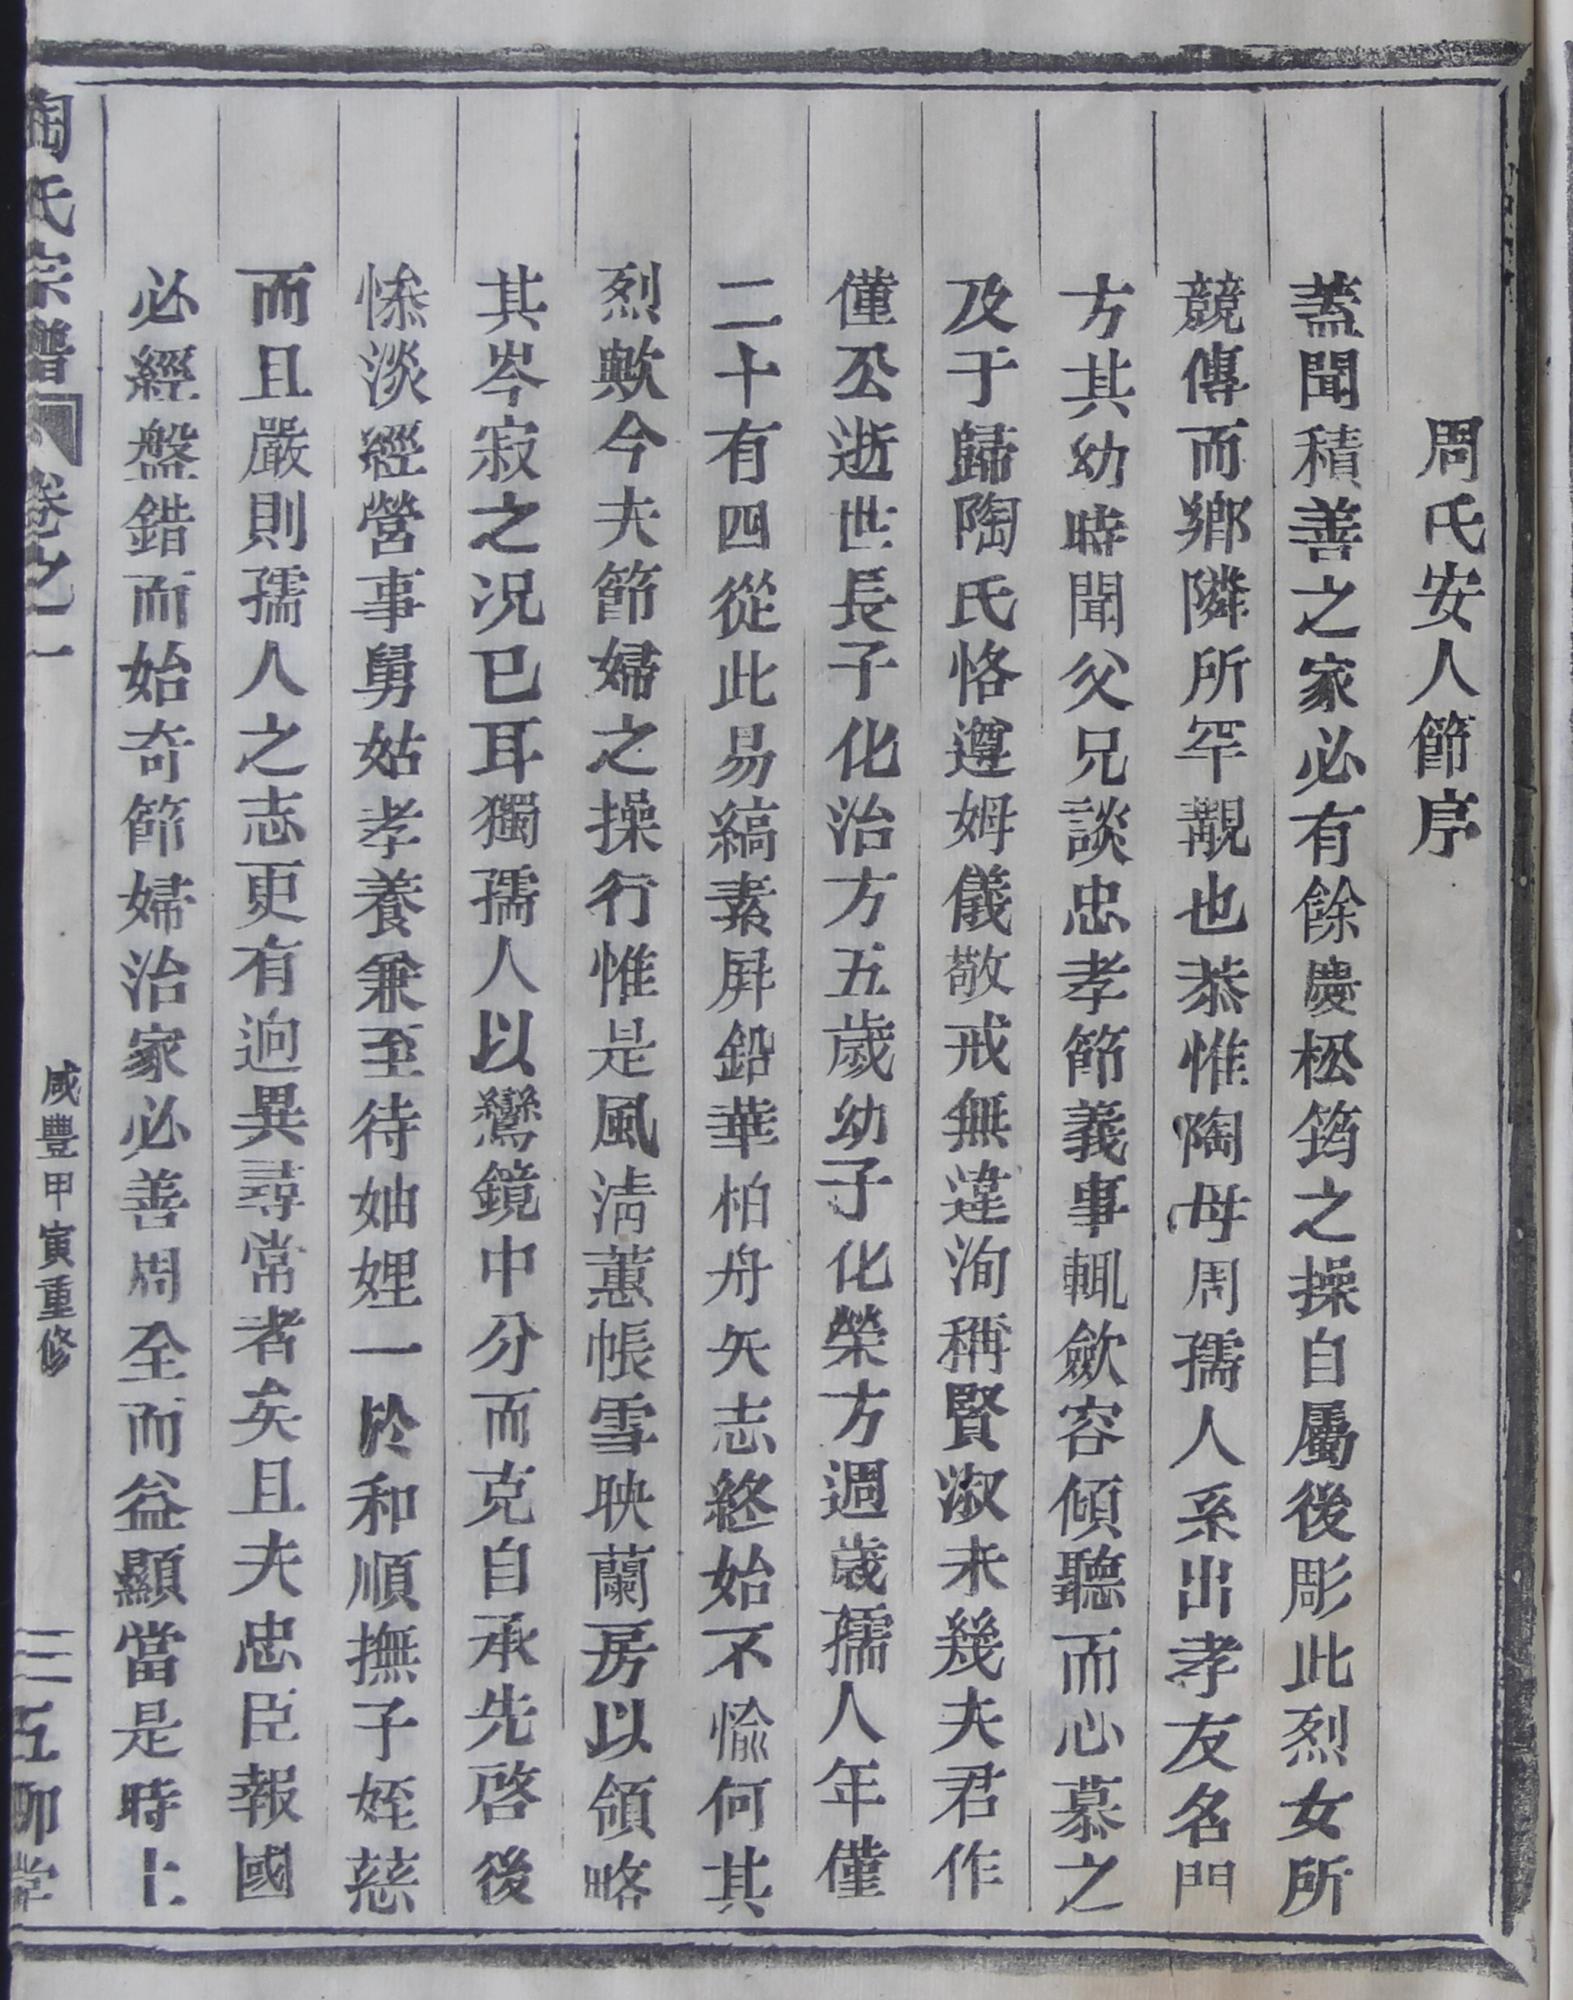 周氏安人節序
蓋聞積善之家必有餘慶松筠之操自屬後彫此烈女所
競傳而鄉隣所罕覯也恭惟陶母周孺人系出孝友名門
方其幼時聞父兄談忠孝節義事輒歛容傾聽而心慕之
及于歸陶氏恪遵姆儀敬戒無違洵稱賢淑未幾夫君作
僅公逝世長子化治方五歲幼子化榮方週歲孺人年僅
二十有四從此易縞素屏鉛華柏舟矢志終始不愉何其
烈歟今夫節婦之操行惟是風淸蕙帳雪映蘭房以領略
其岑寂之況已耳獨孺人以鸞鏡中分而克自承先啓後
慘淡經營事舅姑孝養兼至待妯娌一於和順撫子姪慈
而且嚴則孺人之志更有逈異尋常者矣且夫忠臣報國
必經盤錯而始奇節婦治家必善周全而益顯當是時上
陶氏宗譜 卷之一 咸豐甲寅重修 三 五柳堂